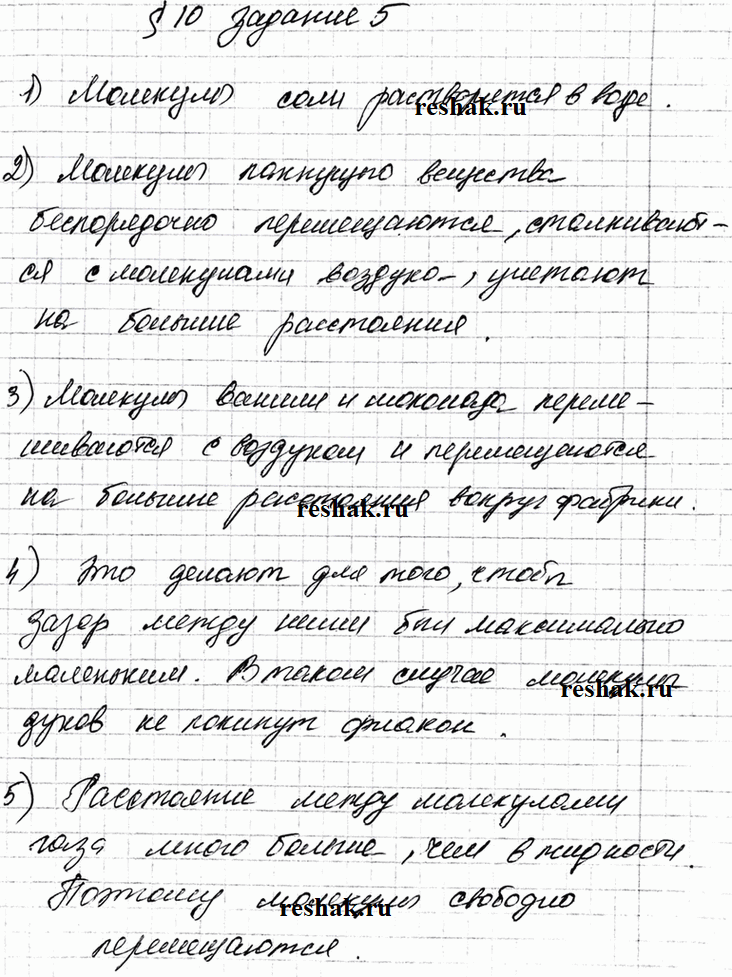 § 10 Задание 5
1) Молекулы соли растворяется в воде.
2) Молекулы пахнущего вещества
беспорядочно перемещаются, сталкивают-
ся с молекулами воздуха, улетают
на большие расстояния.
3) Молекулы ванили и шоколада переме-
шиваются с воздухом и перемещаются
на большие расстояния вокруг фабрики.
4) Это делают для того, чтобы
зазор между ними был максимально
маленьким. В таком случае молекулы
духов не покинут флакон.
5) Расстояние между молекулами
газа много больше, чем в жидкости.
Поэтому молекулы свободно
перемещаются.
reshak.ru
reshak.ru
reshak.ru
reshak.ru